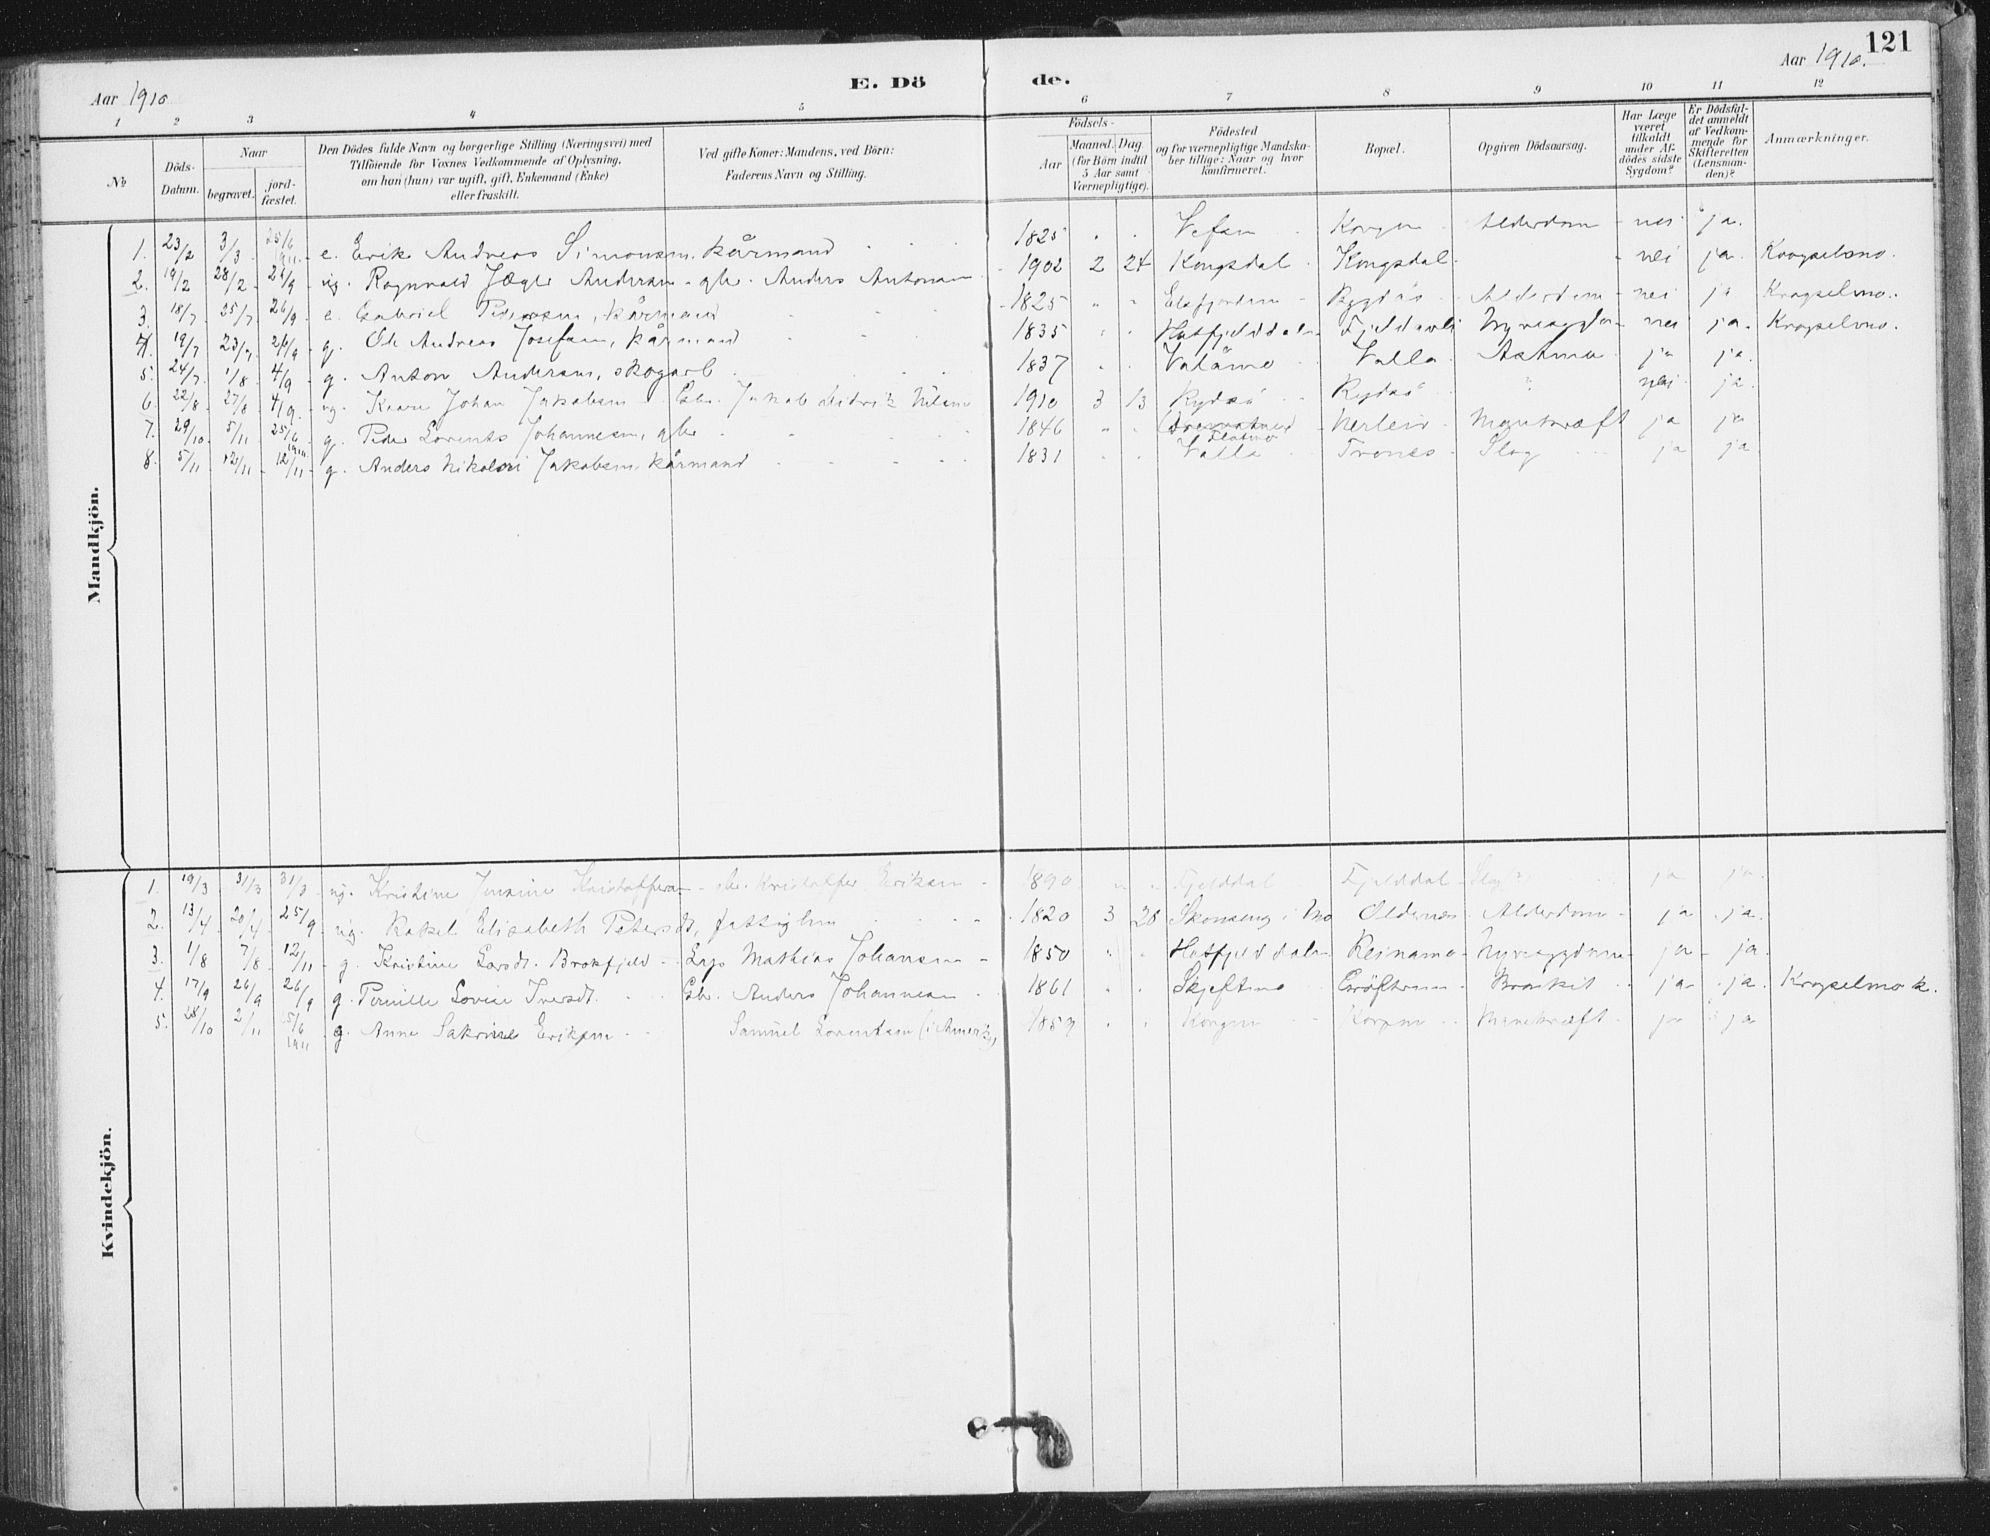 121
Aar 1910
E. Dö de.
Aar 1910.
1 2 3 4 5 6 7 8 9 10 11 12
№
Döds-Datum.
Naar
begravet.
jord-fæstet.
Den Dödes fulde Navn og borgerlige Stilling (Næringsvei) med
Tilföiende for Voxnes Vedkommende af Oplysning,
om han (hun) var ugift, gift, Enkemand (Enke)
eller fraskilt.
Ved gifte Koner: Mandens, ved Börn:
Faderens Navn og Stilling.
Födsels-
Aar
Maaned. Dag.
(for Börn indtil
5 Aar samt
Værnepligtige).
Födested
og for værnepligtige Mandska-
ber tillige: Naar og hvor
konfirmeret.
Bopæl.
Opgiven Dödsaarsag.
Har Læge
været
tilkaldt
under Af-
dödes sidste
Sygdom?
Er Dödsfal-
det anmeldt
af Vedkom-
mende for
Skifteretten
(Lensman-
den)?
Anmærkninger.
Mandkjön.
1. 23/2 3/3 25/6 1911 e. Erik Andreas Simonsen, kårmand 1825 Vefsn Alderdom nei ja.
2. 19/2 28/2 26/9 ug. Ragnvald Andersen gbr. Anders Antonsen 1902 2 24 Kongsdal Kongsdal nei ja Krogselvmo.
3. 18/7 25/7 26/9 e. Gabriel Pedersen, kårmand 1825 Elsfjorden Rydsö Alderdom nei ja Krogselvmo.
4. 19/7 23/7 26/9 g. Ole Andreas Josefsen, kårmand 1835 Hatfjelddalen nei ja. Krogselvmo.
5. 24/7 1/8 4/9 g. Anton Andersen, skogarb. 1837 Valla Astma ja ja.
6. 22/8 27/8 4/9 ug. Kaare Johan Jakobsen Gbr. Jakob Nilsen 1910 3 13 Rydsö Rydsö nei ja.
7. 29/10 5/11 25/6 1911 g. Peder Lorents Johannesen, gbr 1846 Nerleir Mavekræft ja ja
8. 5/11 12/11 12/11 g. Anders Nikolai Jakobsen, kårmand 1831 Valla Trones Slag ja ja
Kvindekjön.
1. 19/3 31/3 31/3 ug. Kristine Kristoffersen gbr. Kristoffer Eriksen 1890 Fjelddal Fjelddal Slag? ja ja.
2. 13/4 20/4 25/9 ug. Rakel Elisabeth Petersdt, fattiglem 1820 3 28 Skonseng i Mo Oldernes Alderdom ja ja.
3. 1/8 7/8 12/11 g. Kristine Larsdt. Brokfjeld Mathias Johansen 1850 Hatfjelddalen Reinamo Nyresygdom ja ja.
4. 17/9 26/9 26/9 g. Pernille Lovise Iversdt. Gbr. Anders Johannesen 1861 Skjeftmo Bronkit ja ja. Krogselvmo k.
5. 28/10 2/11 5/6 1911 g. Anne Eriksen Samuel Lorentsen (i Amerika) 1859 Mavekræft ja ja